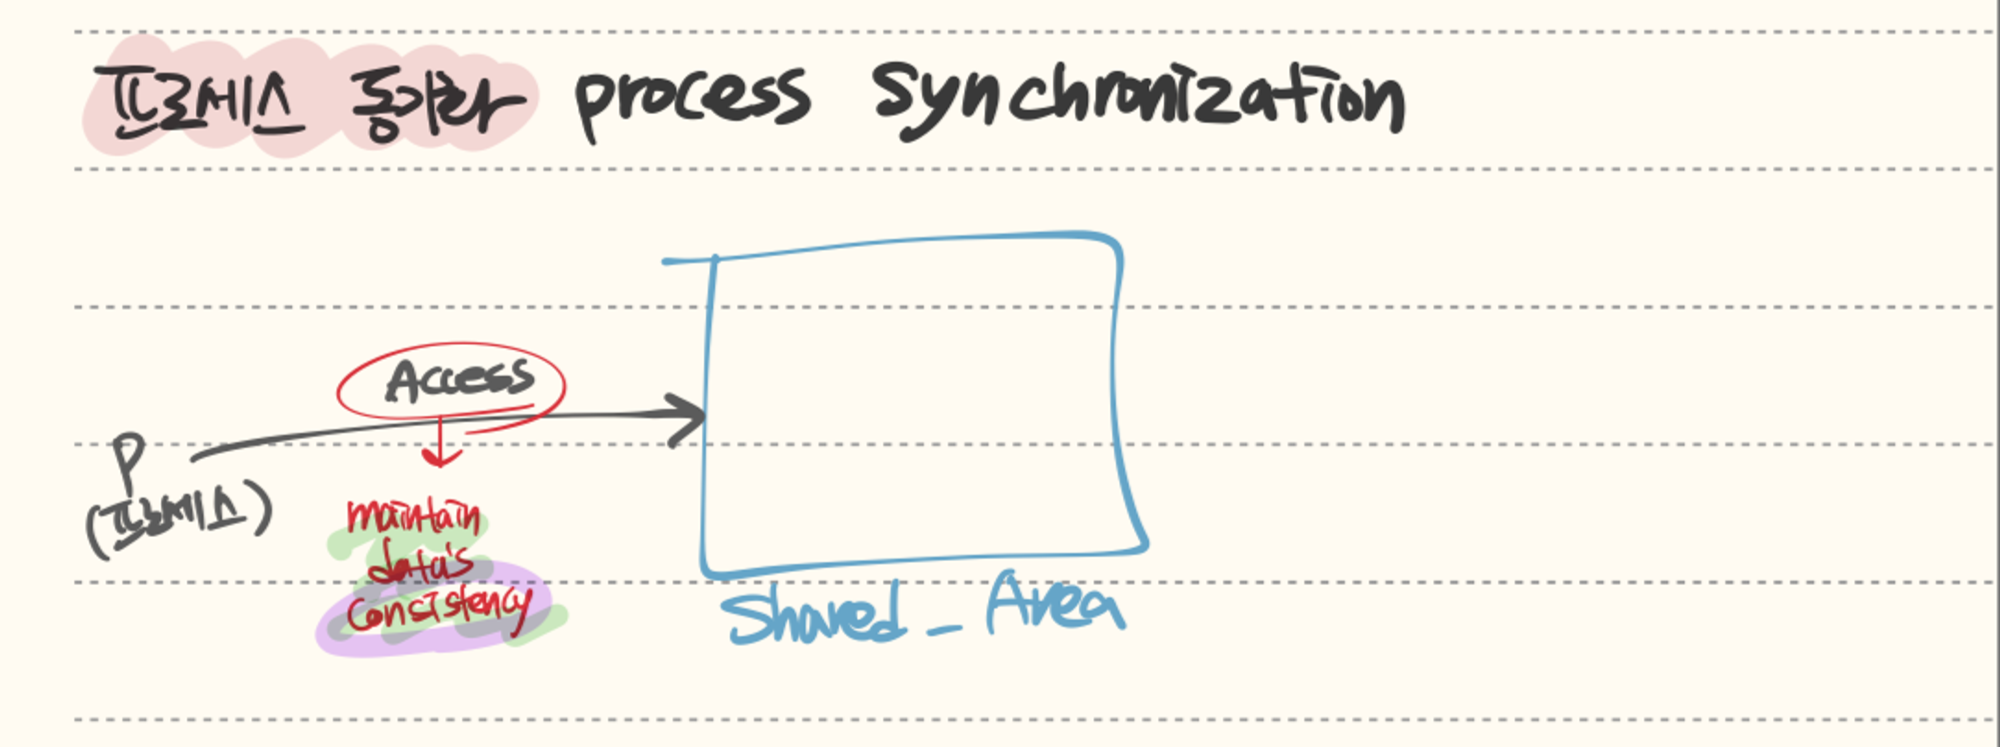 프로세스 동기화 process synchronization
Access
P
(프로세스)
maintain
data's
consistency
Shared_Area